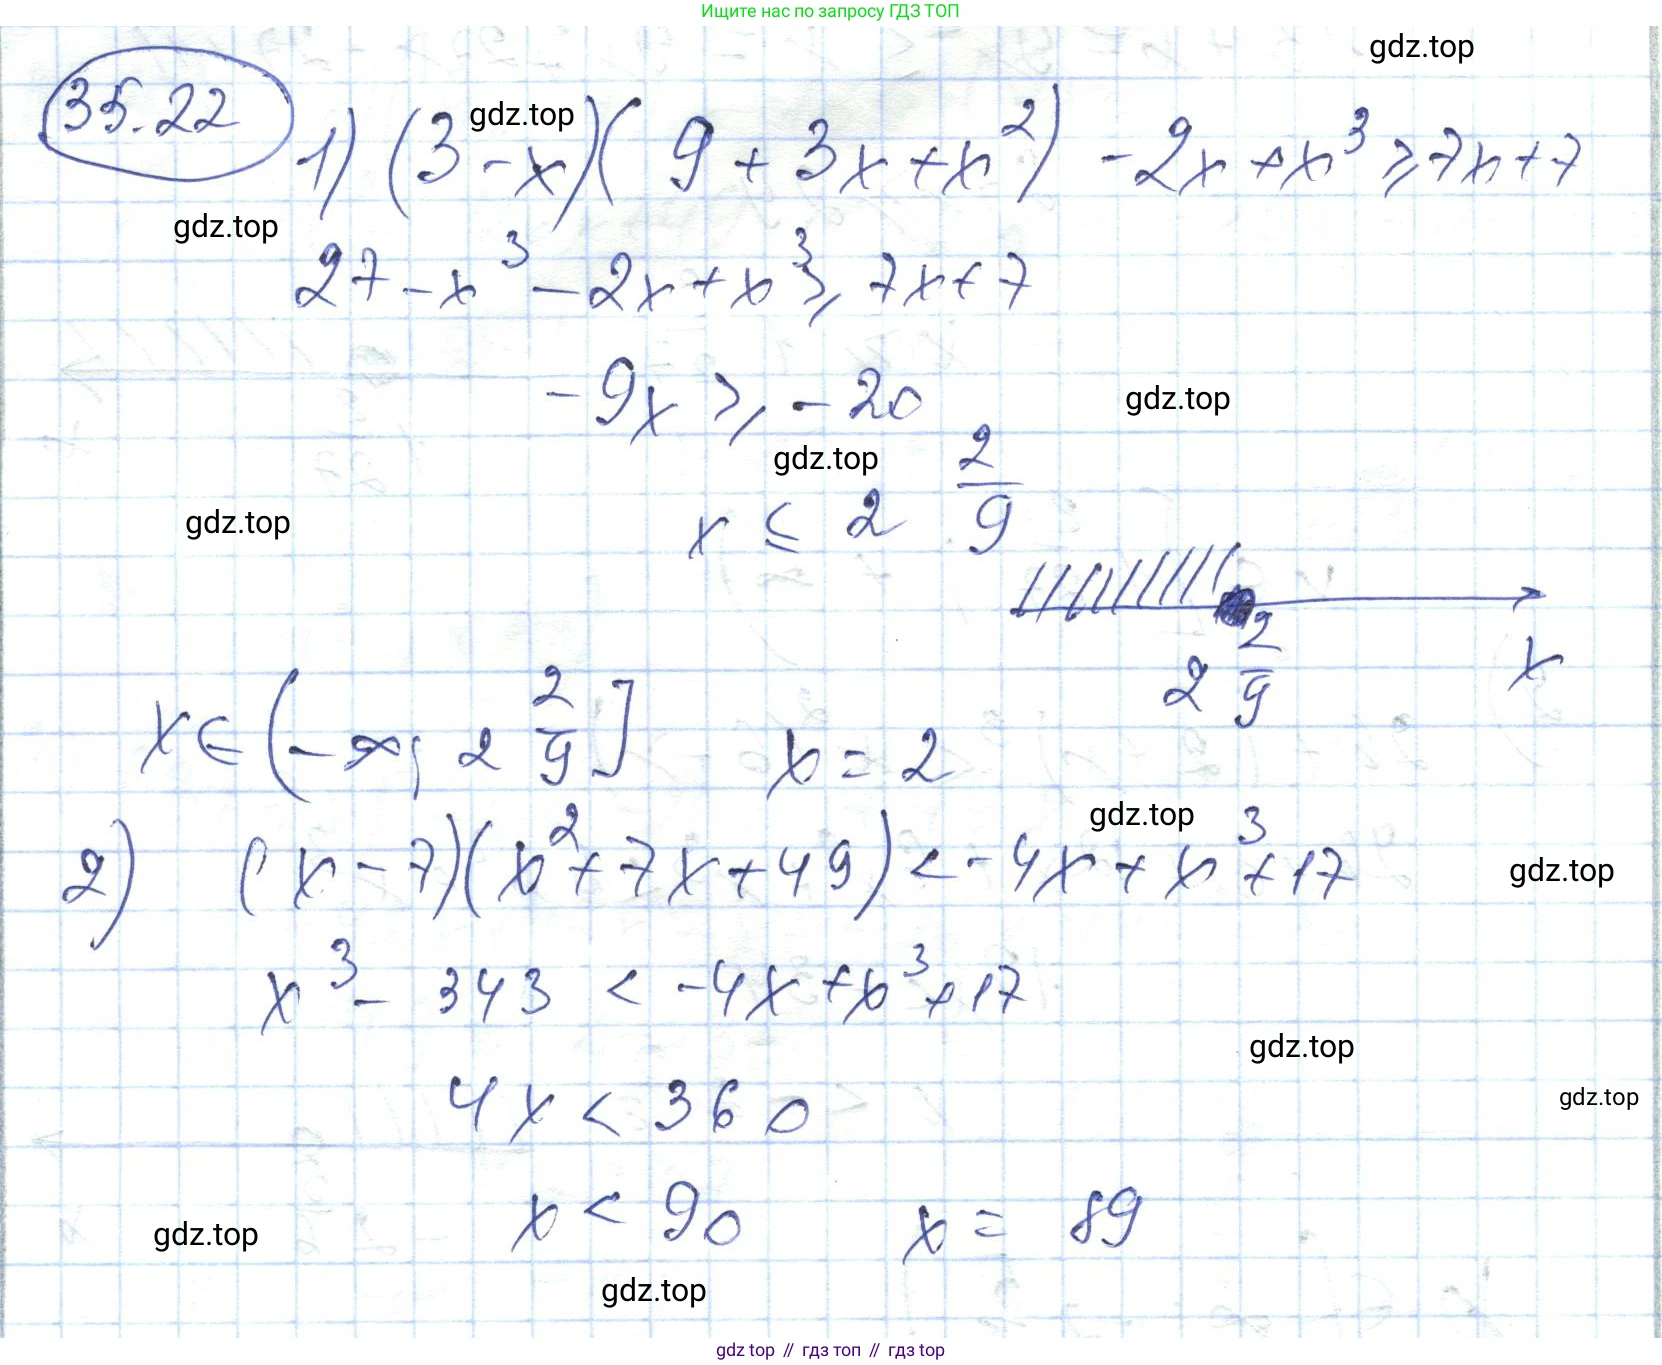 Ищите нас по запросу ГДЗ ТОП
gdz.top
35.22
1) (3 - x)(9 + 3x + x²) - 2x + x³ ⩾ 7x + 7
gdz.top
gdz.top
27 - x³ - 2x + x³ ⩾ 7x + 7
-9x ⩾ -20
gdz.top
gdz.top
x ≤ 2 2/9
gdz.top
2 2/9
x
x ∈ (-∞; 2 2/9] x = 2
gdz.top
2) (x - 7)(x² + 7x + 49) < -4x + x³ + 17
gdz.top
x³ - 343 < -4x + x³ + 17
gdz.top
4x < 360
gdz.top
x < 90 x = 89
gdz.top
gdz.top
gdz top // гдз топ // гдз top